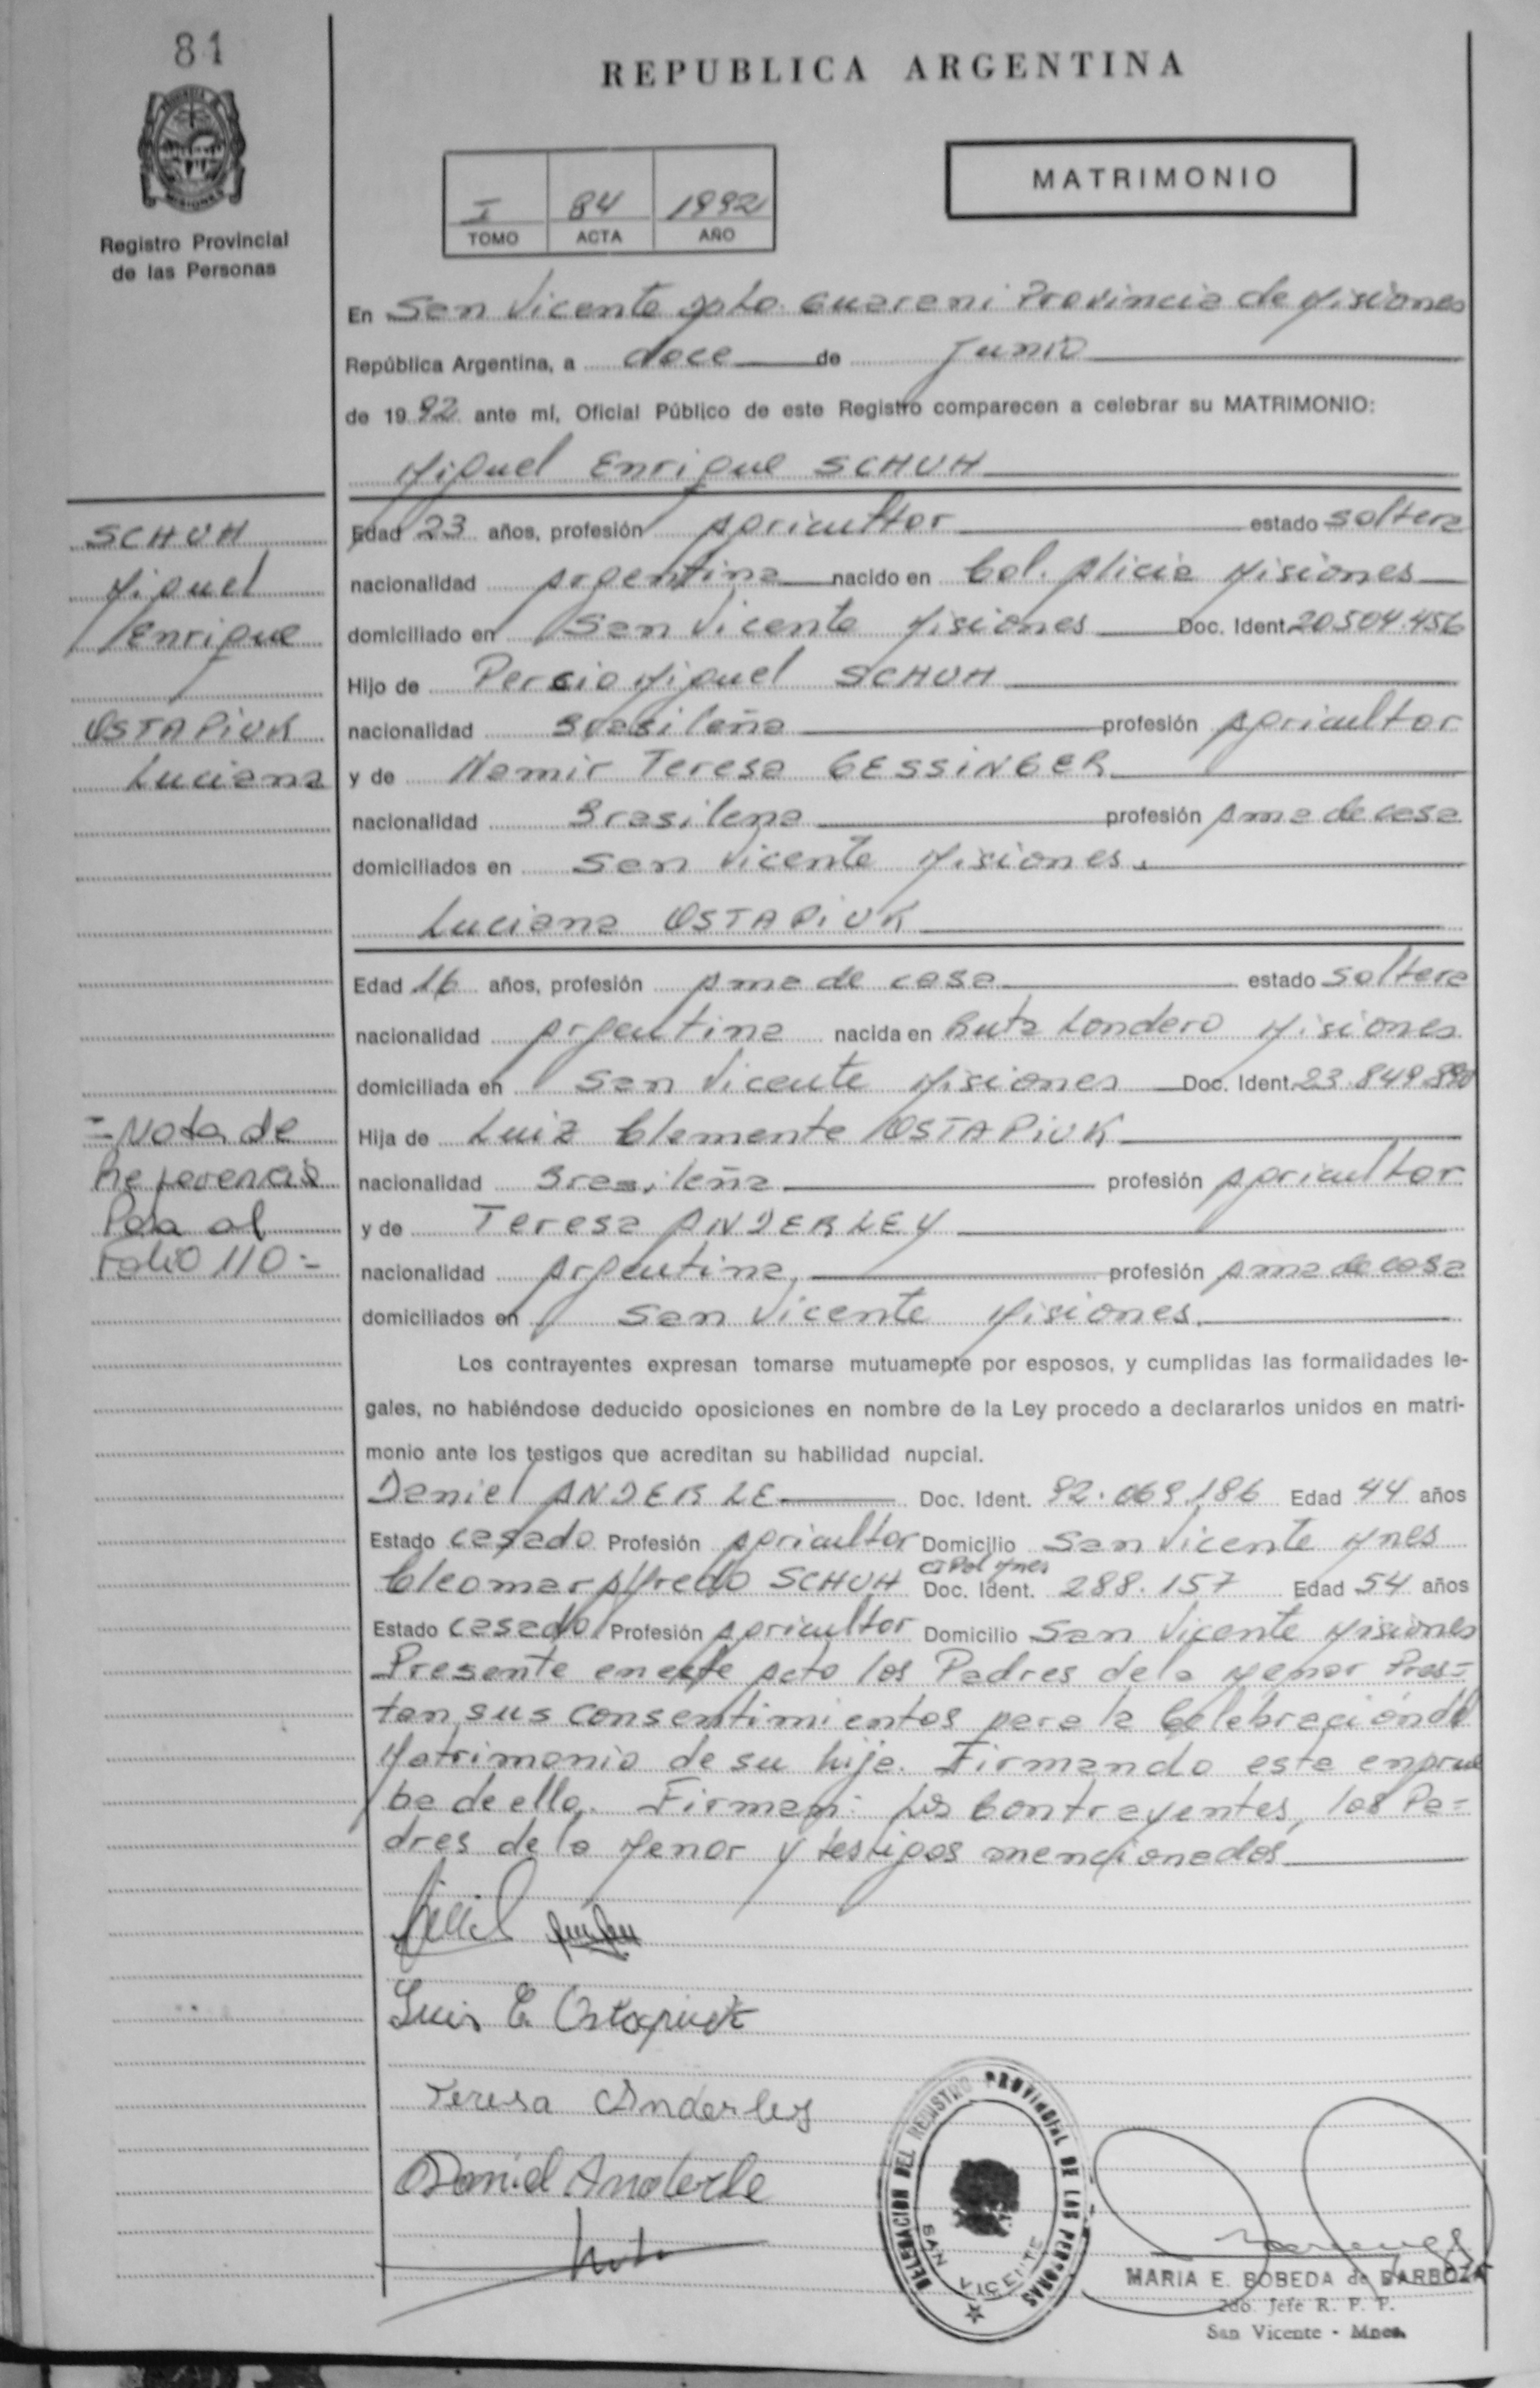 81
REPUBLICA ARGENTINA
MATRIMONIO
I 84 1992
TOMO ACTA AÑO
Registro Provincial
de las Personas
En San Vicente Dpto. Guarani Provincia de Misiones
República Argentina, a doce de Junio
de 1992 ante mí, Oficial Público de este Registro comparecen a celebrar su MATRIMONIO:
Miguel Enrique SCHUH
SCHUH
Miguel
Enrique
OSTAPIUK
Luciana
Edad 23 años, profesión Agricultor estado soltero
nacionalidad Argentina nacido en Col. Alicia Misiones
domiciliado en San Vicente Misiones Doc. Ident. 20.504.456
Hijo de Percio Miguel SCHUH
nacionalidad Brasileña profesión Agricultor
y de Namir Teresa GESSINGER
nacionalidad Brasilena profesión Ama de casa
domiciliados en San Vicente Misiones.
Luciana OSTAPIUK
Edad 16 años, profesión Ama de casa estado soltera
nacionalidad Argentina nacida en Ruta Londero Misiones
domiciliada en San Vicente Misiones Doc. Ident. 23.849.890
Hija de Luiz Clemente OSTAPIUK
nacionalidad Brasileña profesión Agricultor
y de Teresa ANDERLEY
nacionalidad Argentina, profesión Ama de casa
domiciliados en San Vicente Misiones.
=Nota de
Referencia
Pasa al
Folio 110=
Los contrayentes expresan tomarse mutuamente por esposos, y cumplidas las formalidades le-
gales, no habiéndose deducido oposiciones en nombre de la Ley procedo a declararlos unidos en matri-
monio ante los testigos que acreditan su habilidad nupcial.
Daniel ANDERLE Doc. Ident. 92.069.186 Edad 44 años
Estado casado Profesión Agricultor Domicilio San Vicente Mnes
Cleomar Alfredo SCHUH CI Pol Mnes Doc. Ident. 288.157 Edad 54 años
Estado casado Profesión Agricultor Domicilio San Vicente Misiones
Presente en este Acto los Padres de la Menor Pres=
tan sus consentimientos para la Celebración del
Matrimonio de su hija. Firmando esta en prue
ba de ello. Firman: Los Contrayentes, los Pa=
dres de la Menor y testigos mencionados
Luis C. Ostapiuk
Teresa Anderley
Daniel Anderle
DELEGACION DEL REGISTRO PROVINCIAL DE LAS PERSONAS
SAN VICENTE
MARIA E. BOBEDA de BARBOZA
2do. Jefe R. P. P.
San Vicente - Mnes.